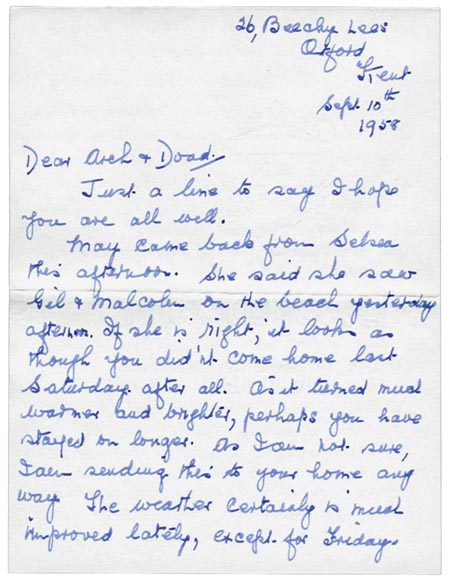 26, Beechy Lees
Otford
Kent
Sept. 10th
1958
Dear Arch & Doad.
Just a line to say I hope
you are all well.
May came back from Selsea
this afternoon. She said she saw
Gil & Malcolm on the beach yesterday
afternoon. If she is right, it looks as
though you did'nt come home last
Saturday after all. As it turned much
warmer and brighter, perhaps you have
stayed on longer. As I am not sure,
I am sending this to your home any
way. The weather certainly is much
improved lately, except for Friday.